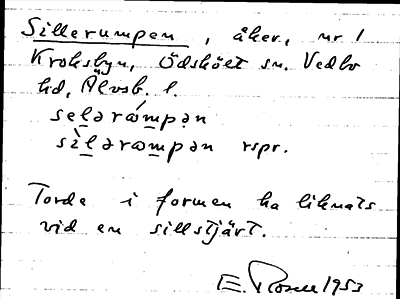 Sillerumpen, åker, nr 1
Kroksbyn, Ödsköets sn. Vedbo
hd, Älvsb. l.
selǝrømpǝn
sìlǝrømpǝn rspr.
Torde i formen ha liknats
vid en sillstjärt.
E. Rosell 1953